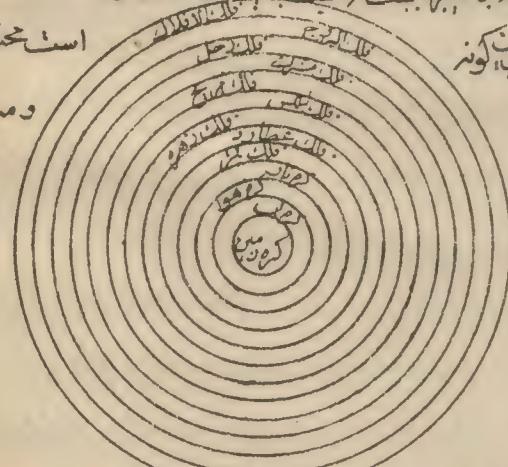 است
کویند
فلك الافلاك
فلك البروج
فلك زحل
فلك مشتری
فلك مریخ
فلك شمس
فلك زهره
فلك عطارد
فلك قمر
کره نار
کره هوا
کره آب
کره زمین